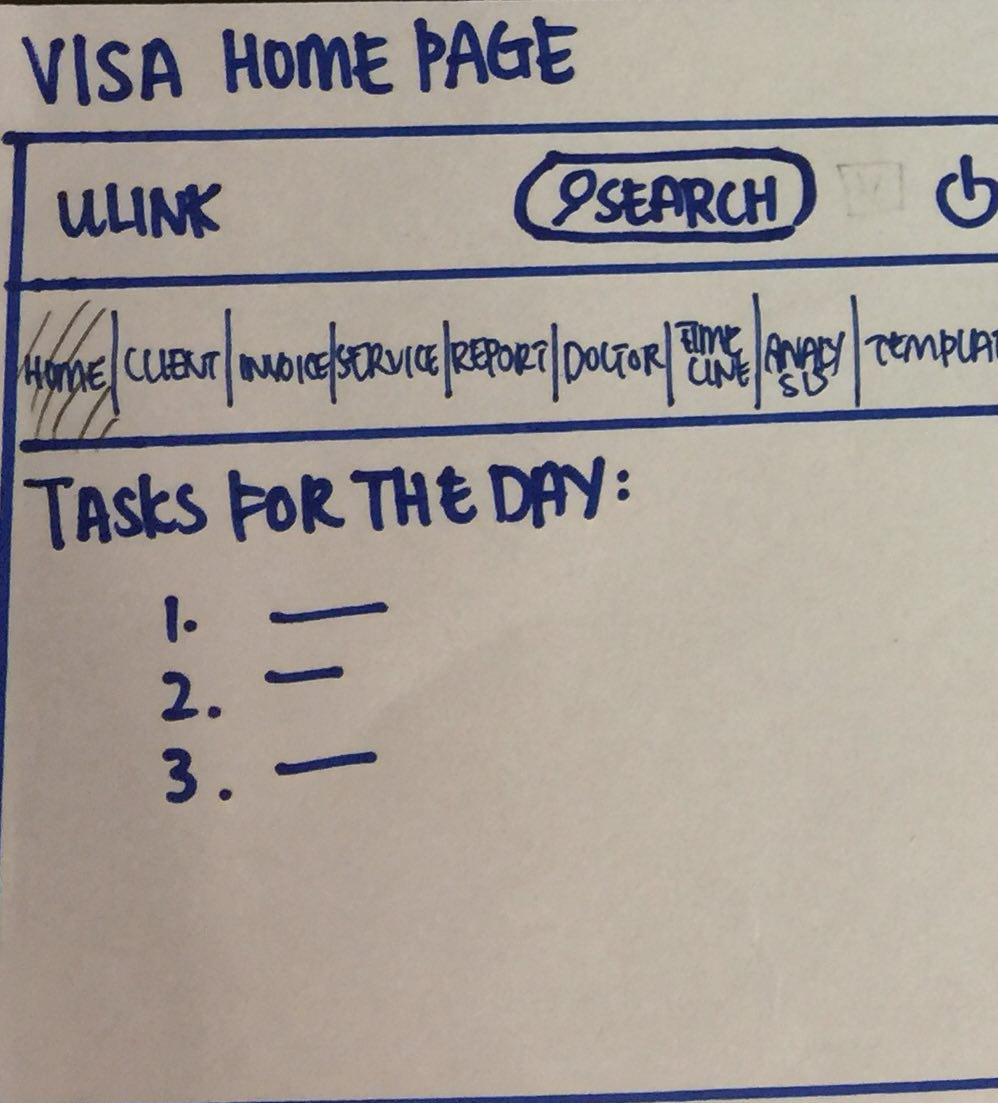 VISA HOME PAGE
ULINK
SEARCH
HOME CLIENT INVOICE SERVICE REPORT DOCTOR TIME LINE ANALYSIS TEMPLAT
TASKS FOR THE DAY:
1.
2.
3.